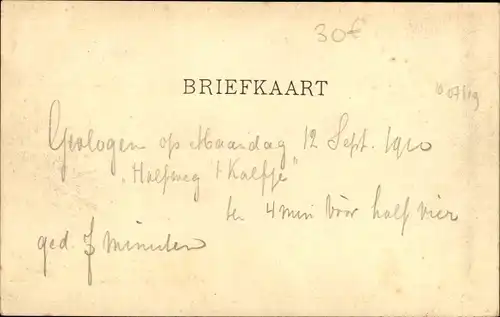 30€
BRIEFKAART
Gevlogen op Maandag 12 Sept. 1910
„Halfweg 't Kalfje"
ten 4 min vóór half vier
ged. 7 minuten